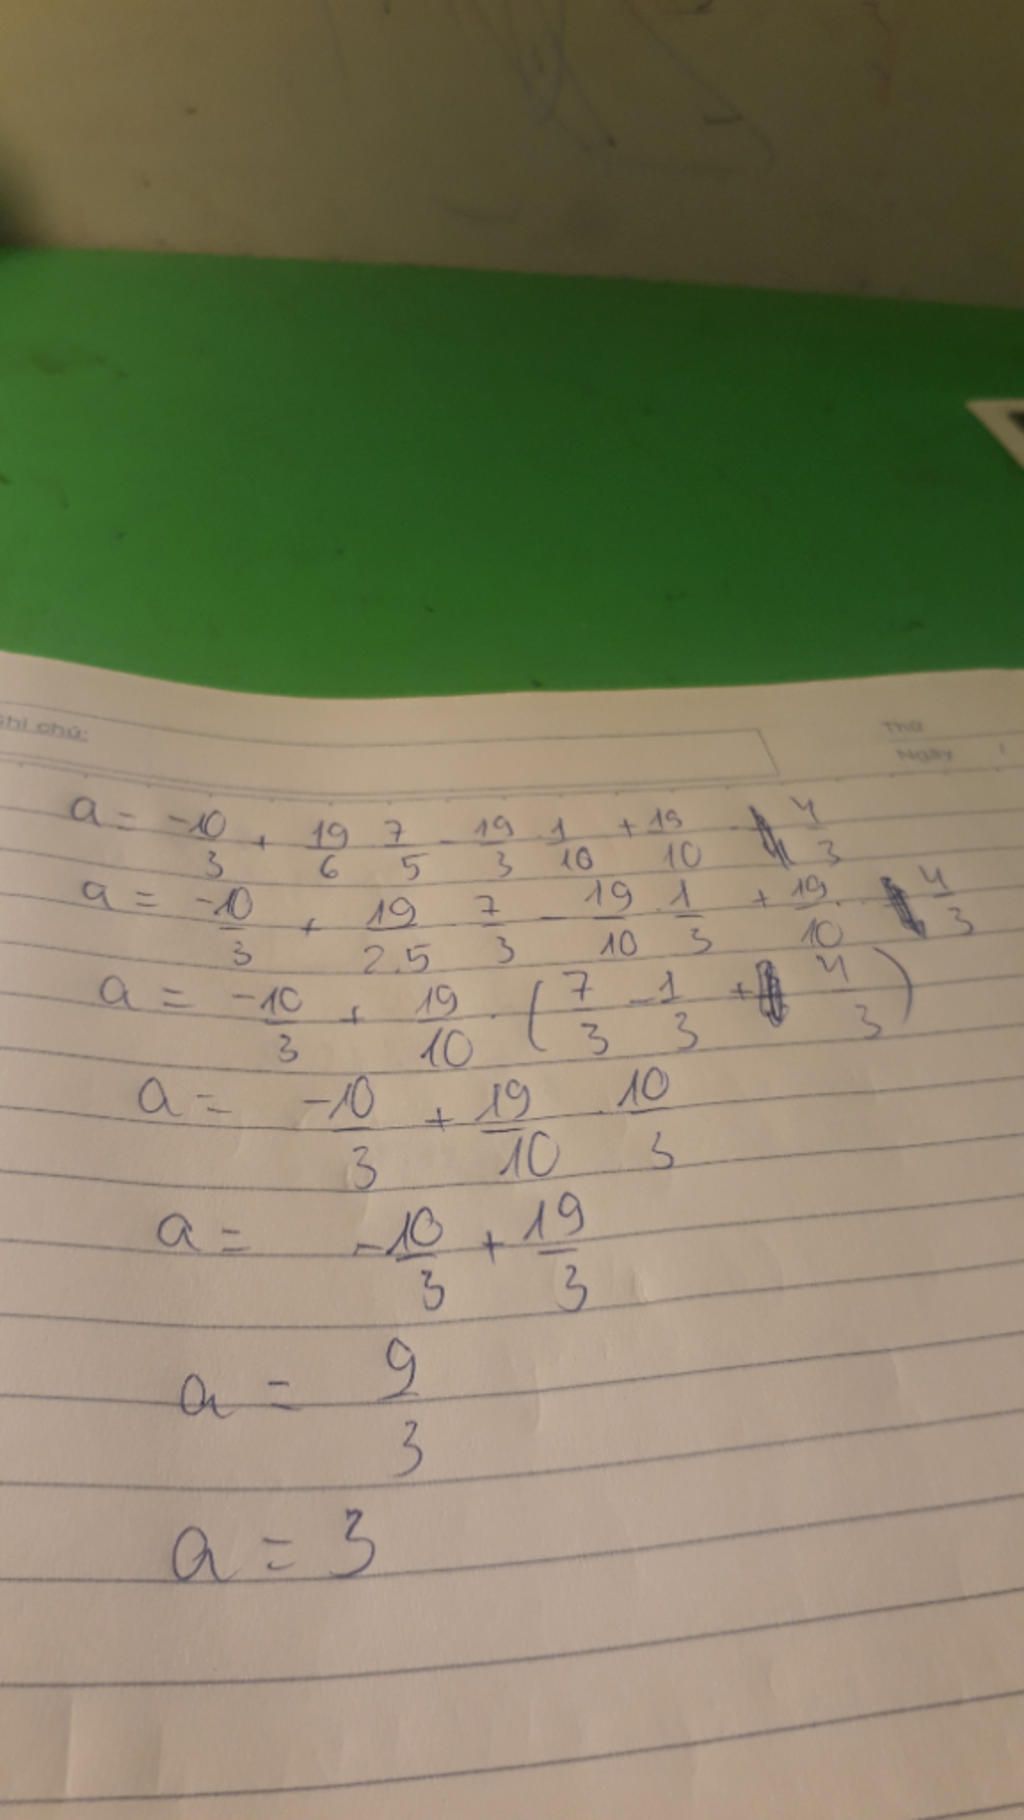 Ghi chú:
Thứ
Ngày /
a = -10/3 + 19/6 7/5 - 19/3 . 1/10 + 19/10 . 4/3
a = -10/3 + 19/2.5 . 7/3 - 19/10 . 1/3 + 19/10 . 4/3
a = -10/3 + 19/10 . (7/3 - 1/3 + 4/3)
a = -10/3 + 19/10 . 10/3
a = -10/3 + 19/3
a = 9/3
a = 3